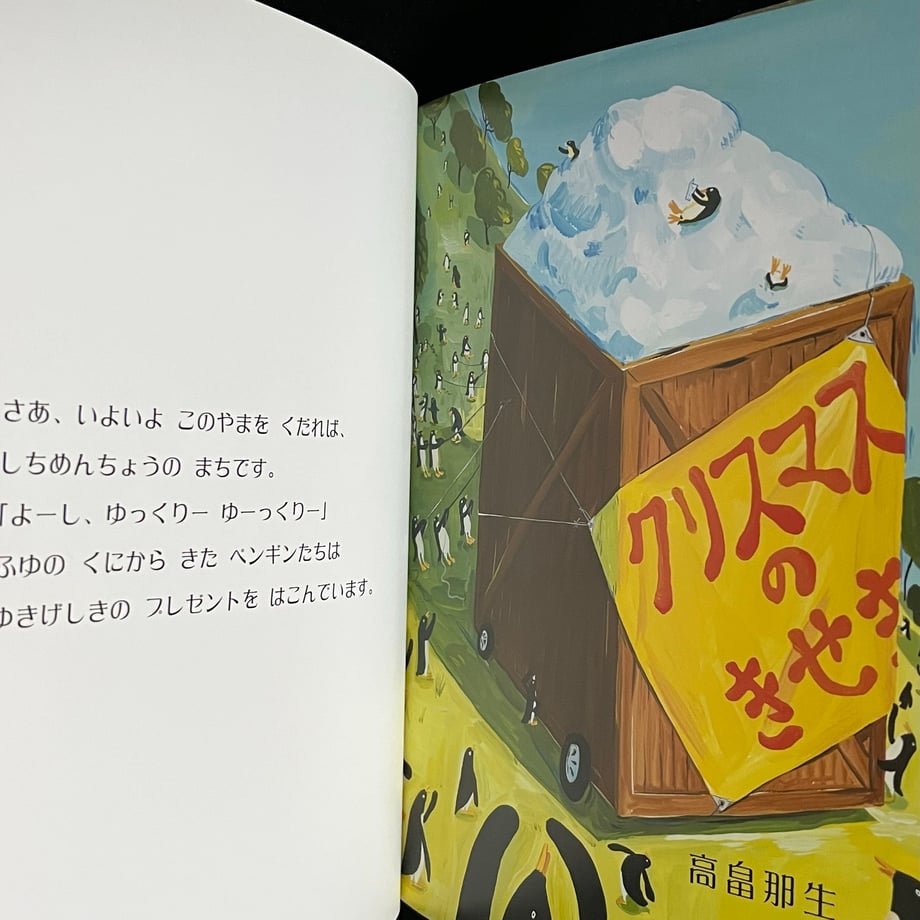 さあ、いよいよ このやまを くだれば、
しちめんちょうの まちです。
「よーし、ゆっくりー ゆーっくりー」
ふゆの くにから きた ペンギンたちは
ゆきげしきの プレゼントを はこんでいます。
クリスマス
の
きせき
高畠那生